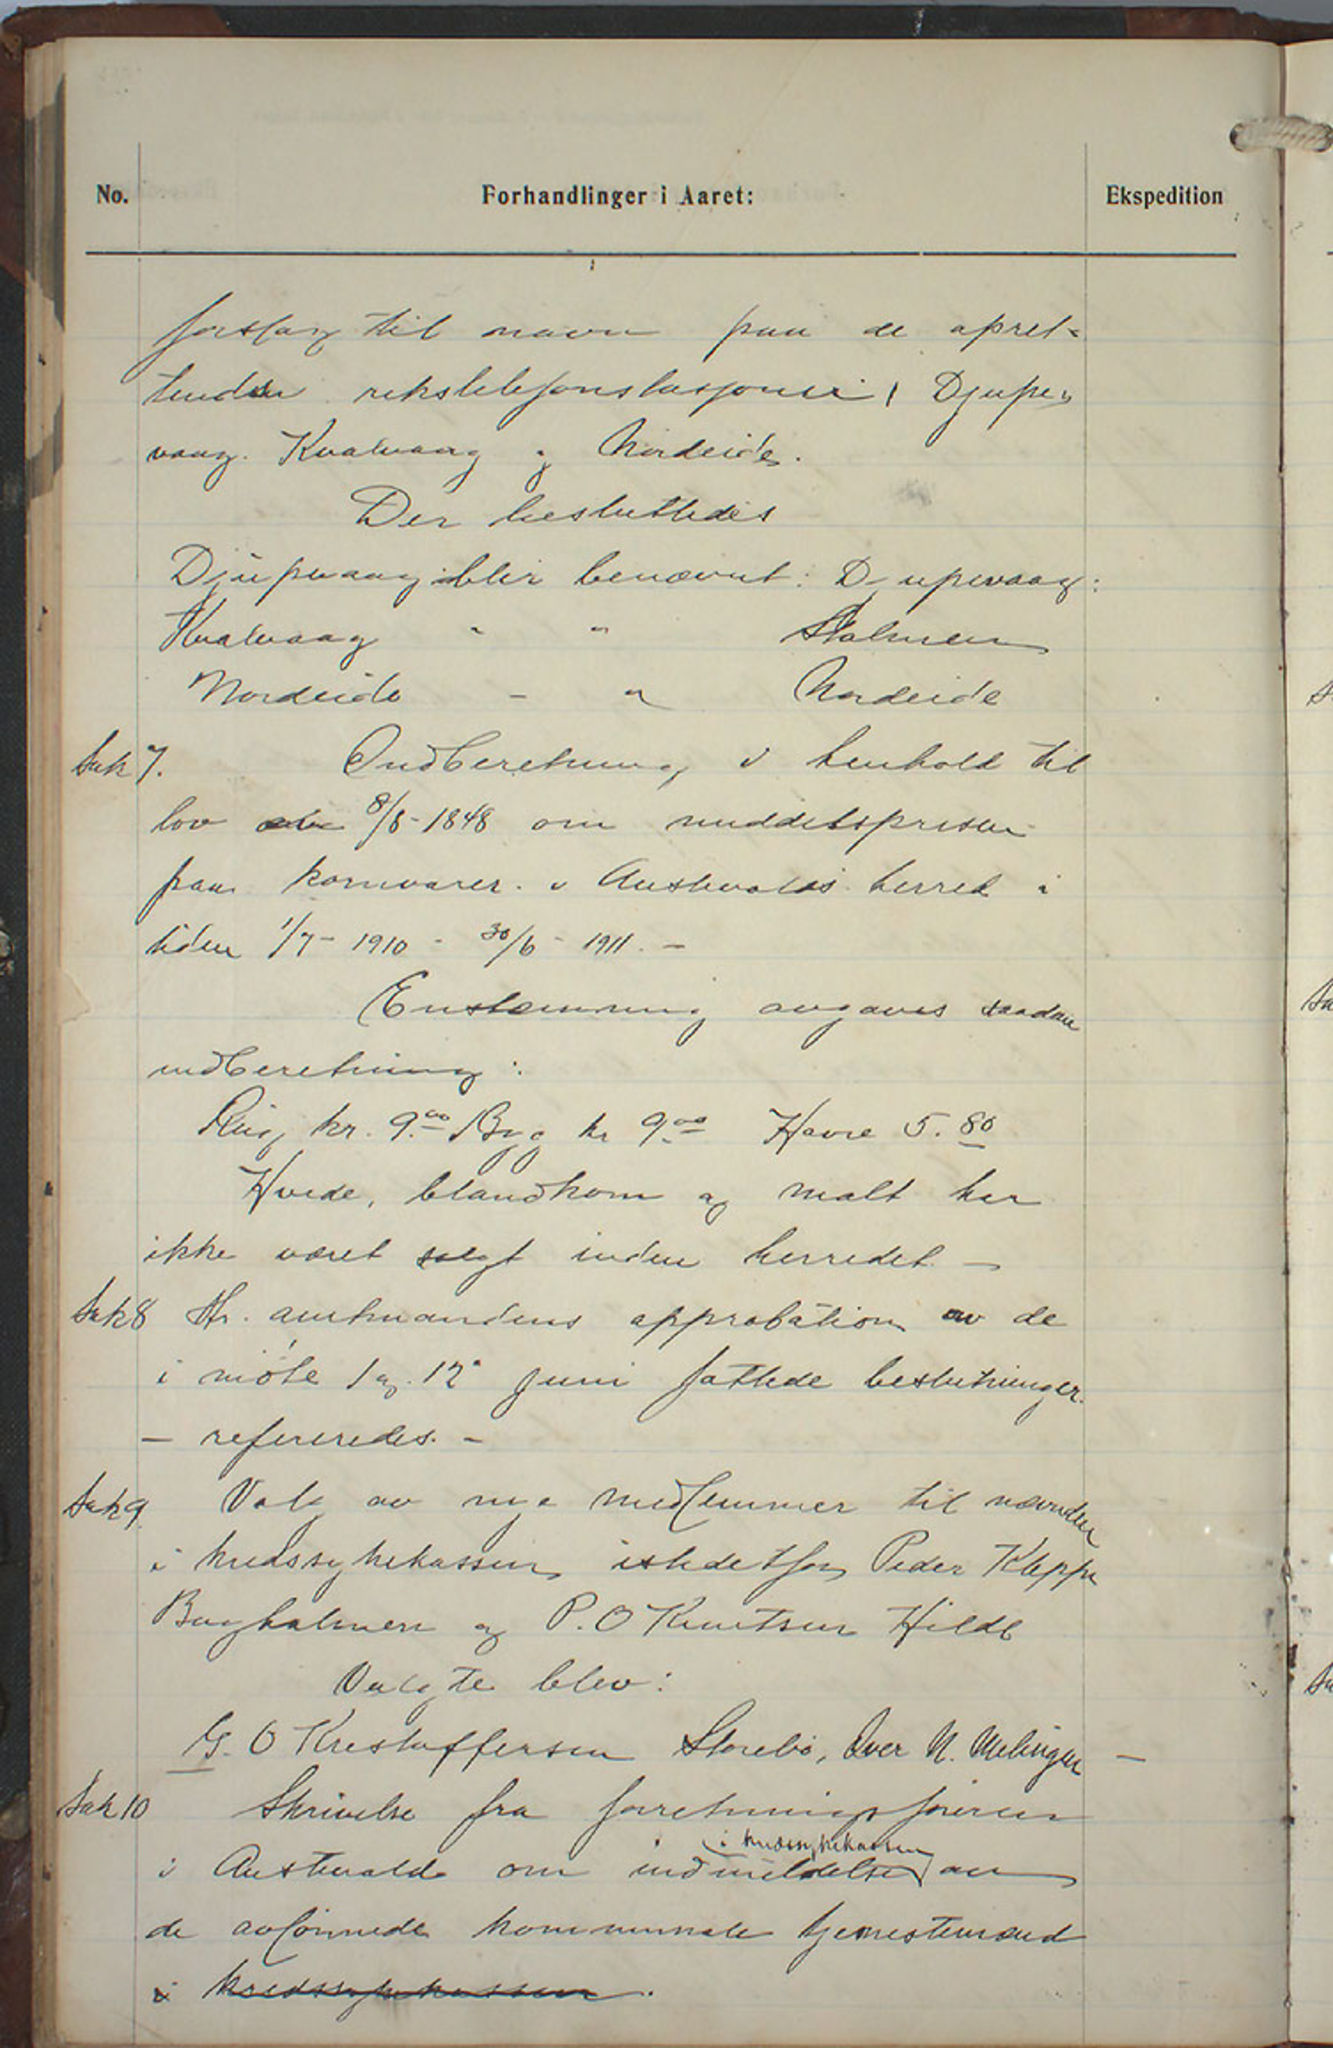 No. Forhandlinger i Aaret: Ekspedition
forslag til navn paa de opret-
tendes rikstelefonstasjoner i Djupe-
vaag. Kvalvaag og Nordeide.
Der besluttedes
Djupevaag blir benævnt: Djupevaag:
Kvalvaag " " Stolmen
Nordeide - " Nordeide
Sak 7. Indberetning i henhold til
lov av 8/8-1848 om middelsprisen
paa kornvarer i Austevolds herred i
tiden 1/7-1910 - 30/6-1911. -
Enstemmig avgaves saadan
indberetning:
Rug kr. 9.00 Byg kr 9.00 Havre 5.80
Hvede, blandkorn og malt har
ikke været solgt inden herredet. -
Sak 8 Hr. amtmandens approbation av de
i møte 1 og 12 juni fattede beslutninger.
- refereredes. -
Sak 9 Valg av nye medlemmer til nævnden
i kredssykekassen istedetfor Peder Kleppe
Bugholmen og P. O Knutsen Hilde
Valgte blev:
G. O Kristoffersen Storebø, Iver N. Melingen -
Sak 10 Skrivelse fra forretningsføreren
i kredssykekassen
i Austevold om indmeldelse av
de avlønnede kommunale tjenestemænd
i kredssykekassen.
Sak